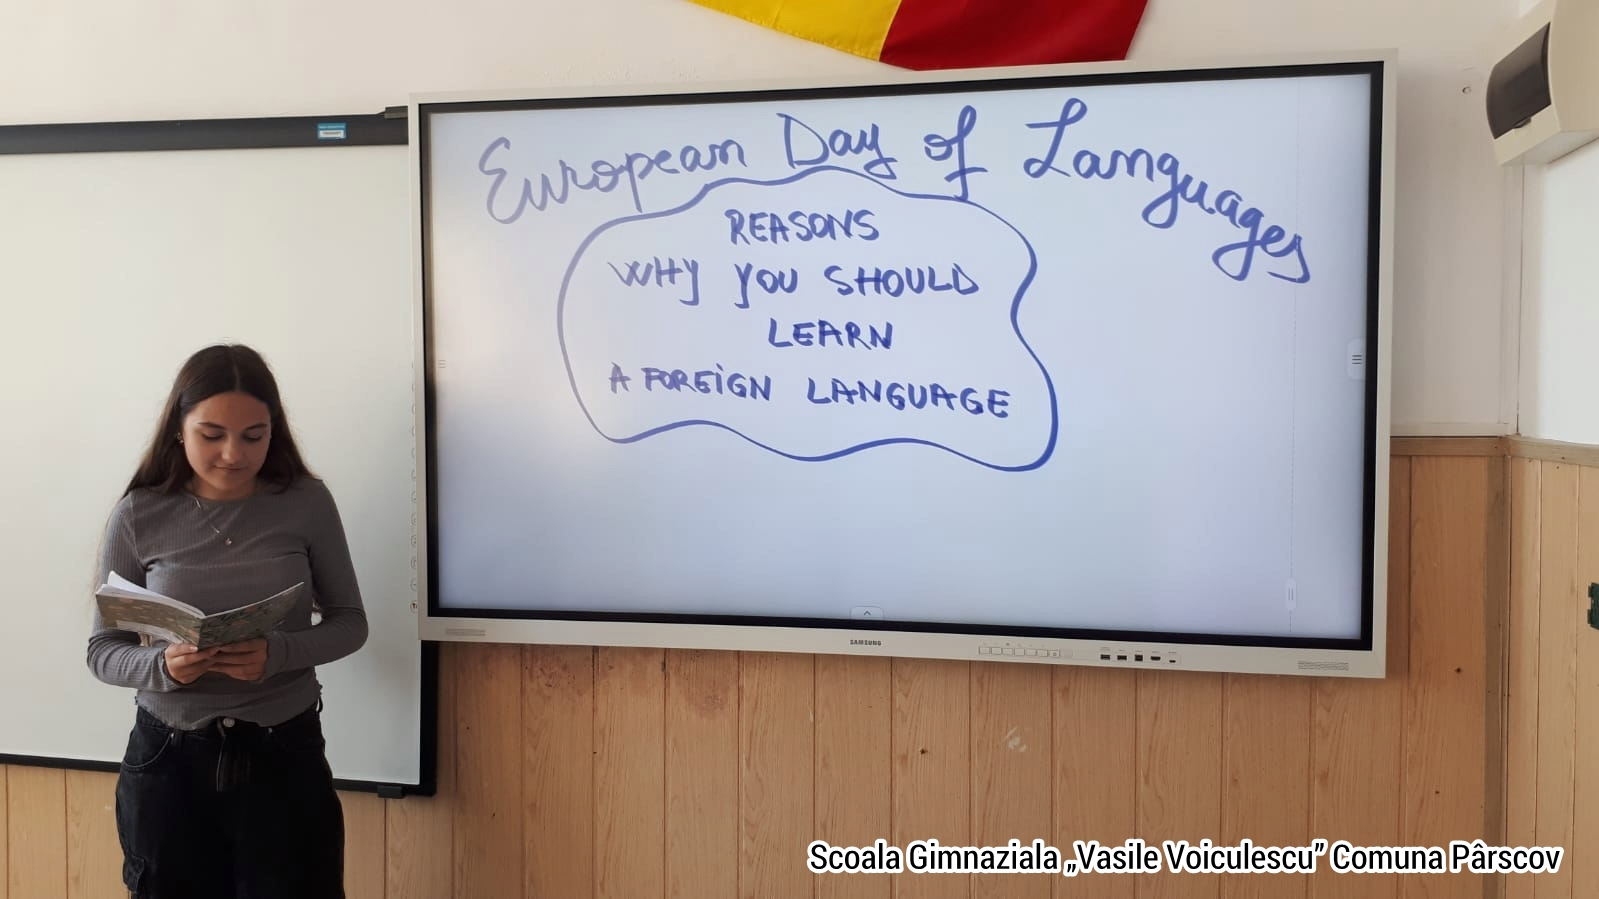 European Day of Languages
REASONS
WHY YOU SHOULD
LEARN
A FOREIGN LANGUAGE
SAMSUNG
Scoala Gimnaziala „Vasile Voiculescu” Comuna Pârscov